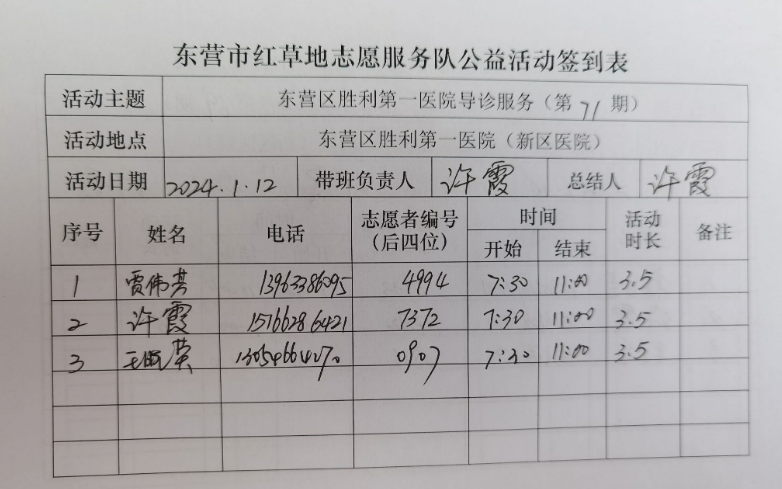 东营市红草地志愿服务队公益活动签到表
活动主题 东营区胜利第一医院导诊服务（第 71 期）
活动地点 东营区胜利第一医院（新区医院）
活动日期 2024.1.12 带班负责人 许霞 总结人 许霞
序号 姓名 电话 志愿者编号（后四位） 时间 开始 结束 活动时长 备注
1 贾伟芳 13963386095 4994 7:30 11:00 3.5
2 许霞 15166286421 7372 7:30 11:00 3.5
3 0907 7:30 11:00 3.5